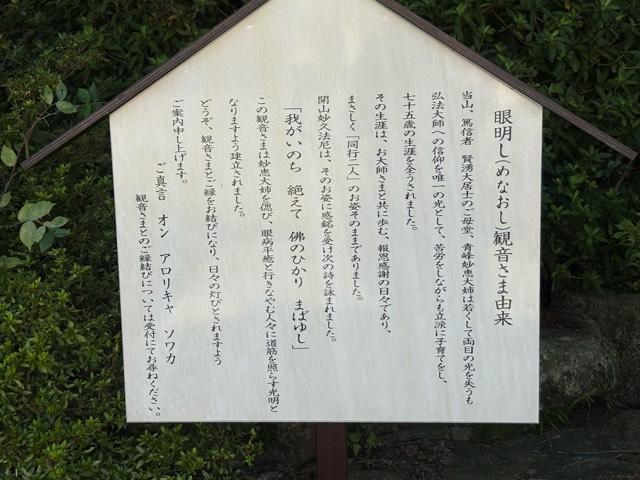 眼明し(めなおし)観音さま由来
当山、篤信者　賢湧大居士のご母堂、青峰妙恵大姉は若くして両目の光を失うも
弘法大師への信仰を唯一の光として、苦労をしながらも立派に子育てをし、
七十五歳の生涯を全うされました。
その生涯は、お大師さまと共に歩む、報恩感謝の日々であり、
まさしく「同行二人」のお姿そのままでありました。
開山妙久法尼は、そのお姿に感銘を受け次の詩を詠まれました。
「我がいのち　絶えて　佛のひかり　まばゆし」
この観音さまは妙恵大姉を偲び、眼病平癒と行きなやむ人々に道筋を照らす光明と
なりますよう建立されました。
どうぞ、観音さまとご縁をお結びになり、日々の灯びとされますよう
ご案内申し上げます。
ご真言　オン　アロリキャ　ソワカ
観音さまとのご縁結びについては受付にてお尋ねください。